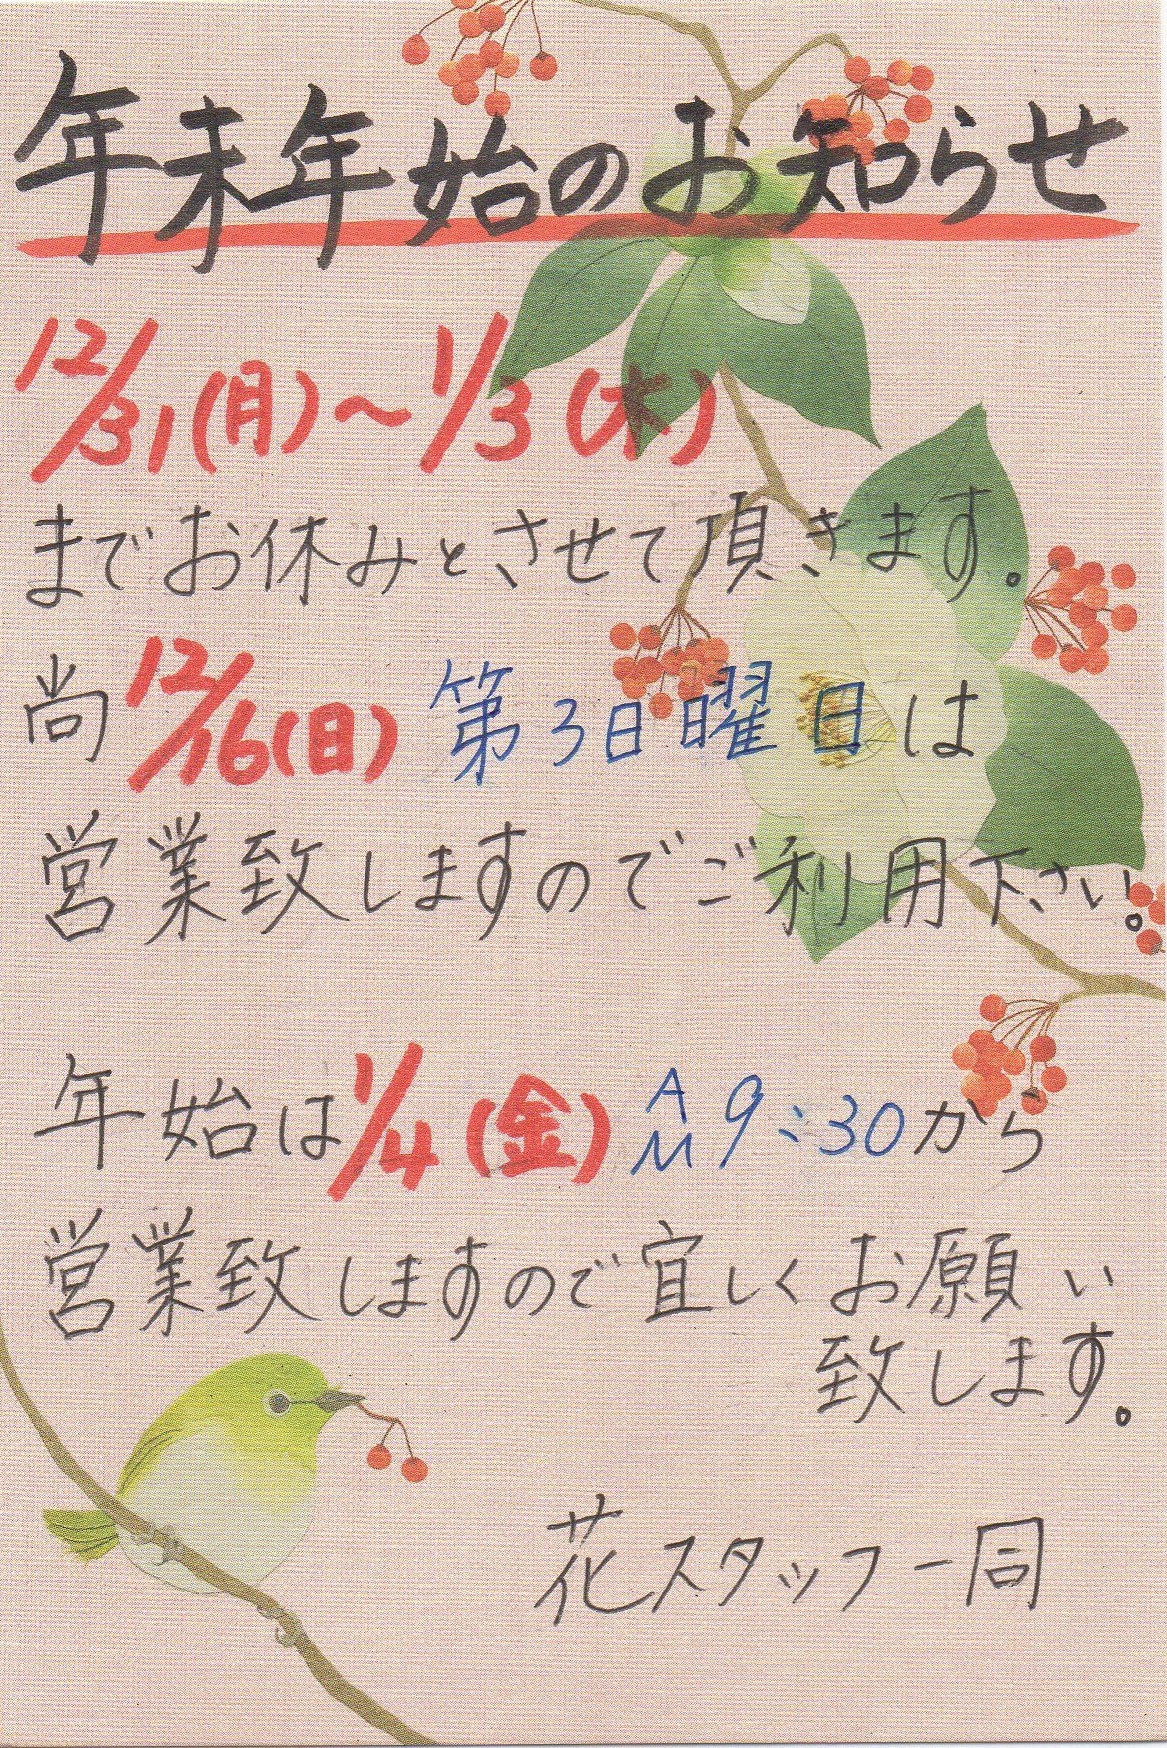 年末年始のお知らせ
12/31(月)～1/3(木)
までお休みとさせて頂きます。
尚12/16(日)第3日曜日は
営業致しますのでご利用下さい。
年始は1/4(金)AM9:30から
営業致しますので宜しくお願い
致します。
花スタッフ一同